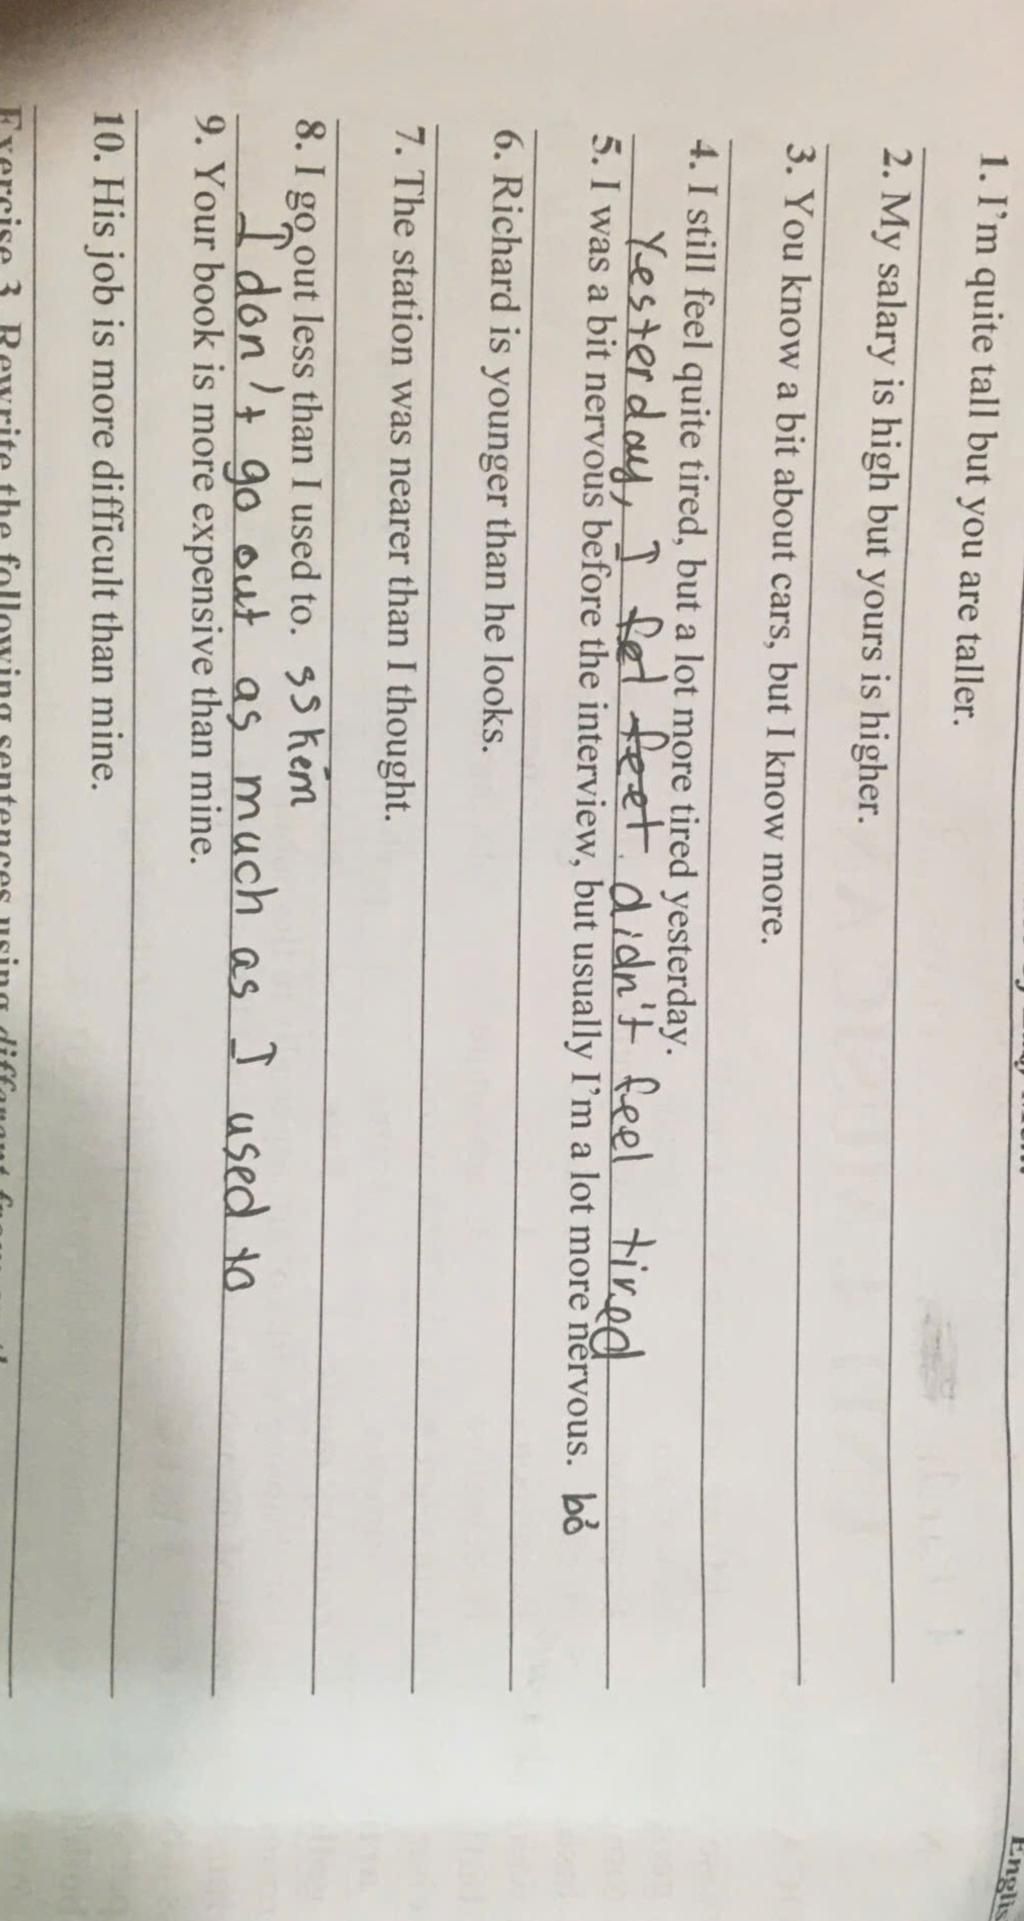 1. I'm quite tall but you are taller.
2. My salary is high but yours is higher.
3. You know a bit about cars, but I know more.
4. I still feel quite tired, but a lot more tired yesterday.
Yesterday, I fel feet didn't feel tired
5. I was a bit nervous before the interview, but usually I'm a lot more nervous. bỏ
6. Richard is younger than he looks.
7. The station was nearer than I thought.
8. I go out less than I used to. ss kém
I don't go out as much as I used to
9. Your book is more expensive than mine.
10. His job is more difficult than mine.
Exercise 3 Rewrite the following sentences using different